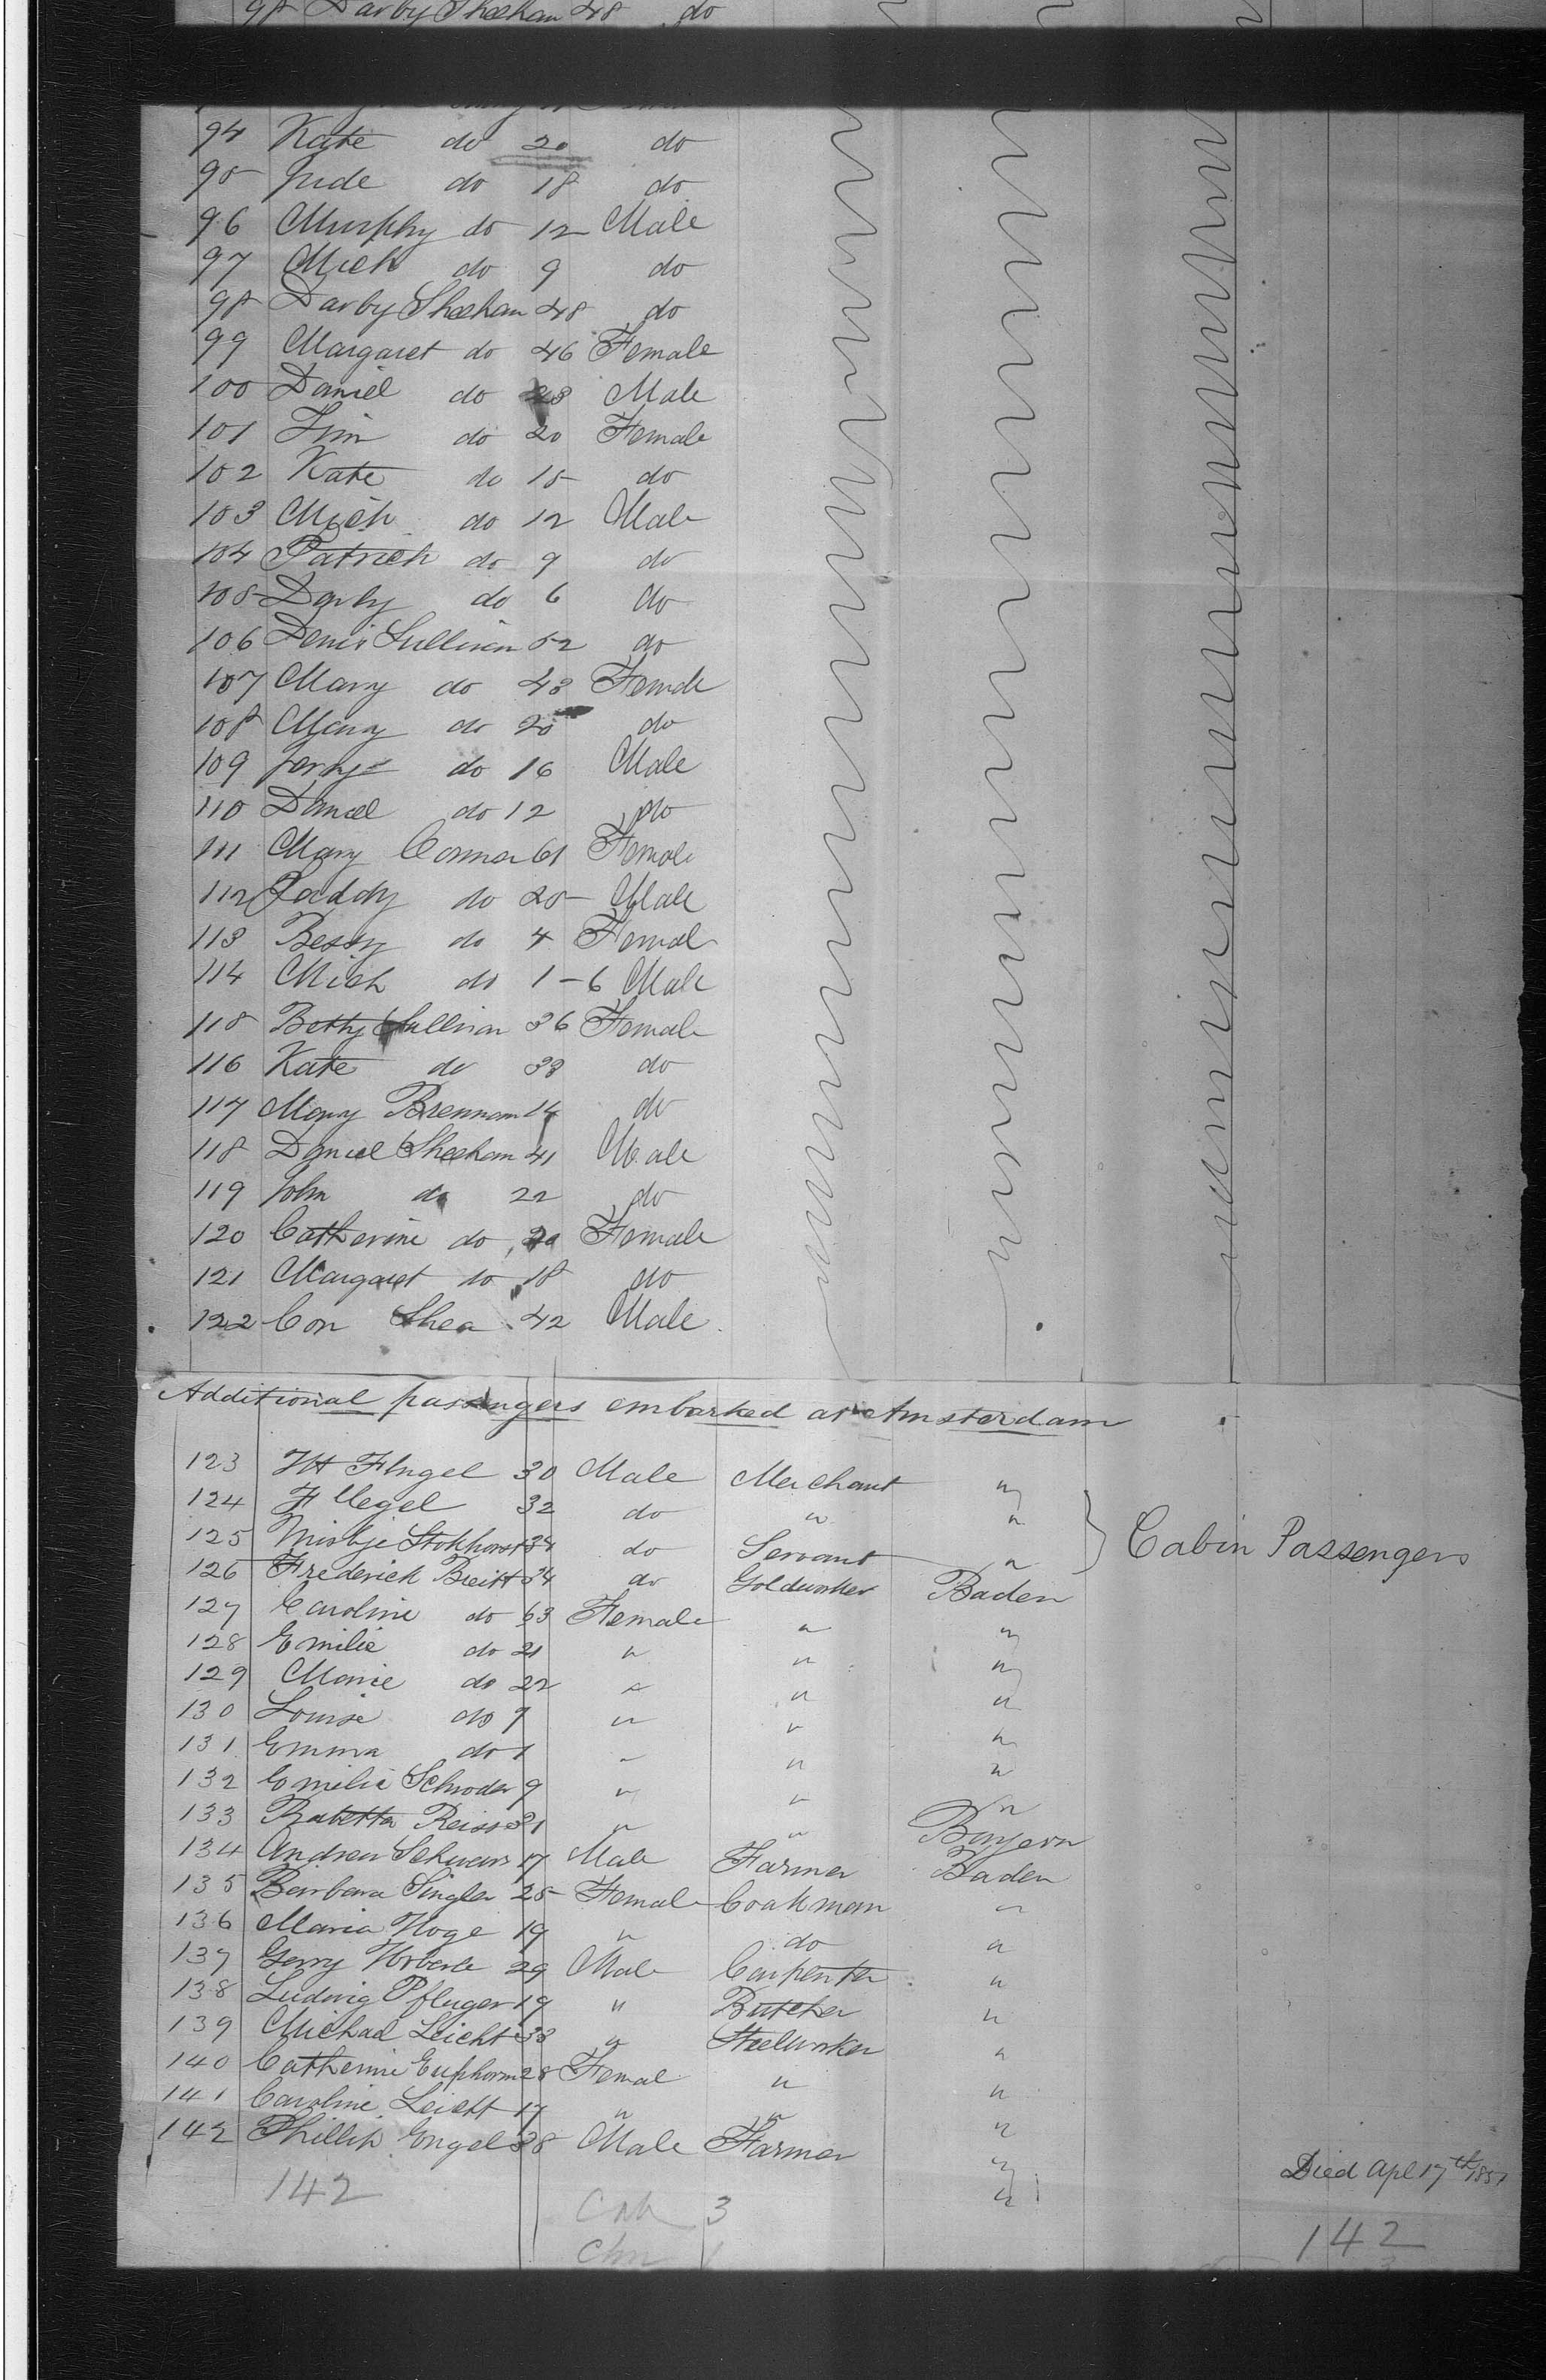 98 Darby Sheehan 48 do
94 Kate do 20 do
95 Jude do 18 do
96 Murphy do 12 Male
97 Mich do 9 do
98 Darby Sheehan 48 do
99 Margaret do 46 Female
100 Daniel do 23 Male
101 Jim do 20 Female
102 Kate do 15 do
103 Mich do 12 Male
104 Patrick do 9 do
105 Darby do 6 do
106 Denis Sullivan 52 do
107 Mary do 43 Female
108 Mary do 20 do
109 Jerry do 16 Male
110 Daniel do 12 do
111 Mary Connor 61 Female
112 Paddy do 25 Male
113 Bessy do 4 Female
114 Mich do 1-6 Male
115 Betty Sullivan 36 Female
116 Kate do 33 do
117 Mary Brennan 14 do
118 Daniel Sheehan 41 Male
119 John do 22 do
120 Catherine do 20 Female
121 Margaret do 18 do
122 Con Shea 42 Male
Additional passengers embarked at Amsterdam
123 Flugel 30 Male Merchant "
124 F Uegel 32 do " "
125 Stokhorst 34 do Servant " Cabin Passengers
126 Frederick Breitt 34 do Goldworker Baden
127 Caroline do 63 Female " "
128 Emilie do 21 " " "
129 Marie do 22 " " "
130 Louise do 9 " " "
131 Emma do 1 " " "
132 Emilie Schroder 9 " " "
133 Babetta Reiss 31 " " Bayern
134 Andreu 17 Male Farmer Baden
135 Barbara Singler 25 Female Coakman "
136 Maria Hoge 19 " do "
137 Gerry 29 Male Carpenter "
138 Ludwig Pfluger 19 " Butcher "
139 Michael Leicht 33 " Steelworker "
140 Catherine 28 Femal " "
141 Caroline Leicht 17 " " "
142 Phillip Engel 38 Male Farmer "
Died Apl 17th 1851
142 Cab 3 142
Chn 1 3